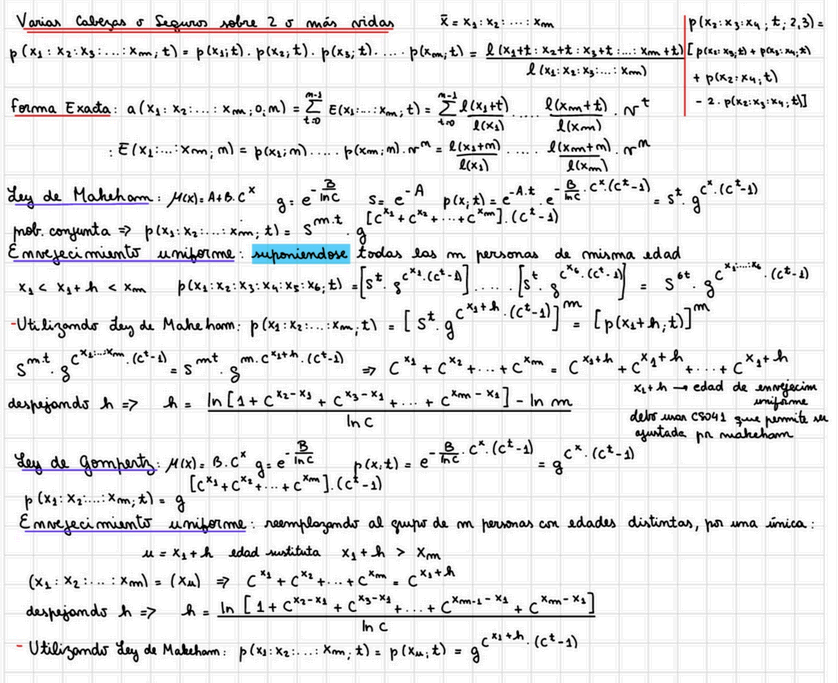 Varias Cabezas o Seguros sobre 2 o más vidas
x̄ = x₁ : x₂ : ... : xm
p(x₂:x₃:x₄; t; 2,3) =
[p(x₂:x₃;t) + p(x₃:x₄;t)
+ p(x₂:x₄;t)
- 2. p(x₂:x₃:x₄;t)]
p(x₁:x₂:x₃:...:xm; t) = p(x₁;t). p(x₂;t). p(x₃;t). ... p(xm;t) = l(x₁+t : x₂+t : x₃+t :...: xm+t) / l(x₁:x₂:x₃:...: xm)
Forma Exacta: a(x₁: x₂:...: xm; 0; m) = Σ_{t=0}^{m-1} E(x₁:...:xm; t) = Σ_{t=0}^{m-1} l(x₁+t)/l(x₁) .... l(xm+t)/l(xm) . v^t
: E(x₁:...:xm; m) = p(x₁;m)..... p(xm;m).v^m = l(x₁+m)/l(x₁) ..... l(xm+m)/l(xm) . v^m
Ley de Makeham: μ(x)= A+B.C^x g = e^(-B/ln C) s = e^(-A) p(x;t) = e^(-A.t) . e^(-B/ln C . C^x.(C^t-1)) = s^t. g^(C^x.(C^t-1))
prob. conjunta ⇒ p(x₁:x₂:...:xm; t) = s^(m.t) . g^([C^x₁ + C^x₂ + ... + C^xm].(C^t-1))
Envejecimiento uniforme: suponiendose todas las m personas de misma edad
x₁ < x₁+h < xm p(x₁:x₂:x₃:x₄:x₅:x₆; t) = [s^t. g^(C^x₁.(C^t-1))]..... [s^t. g^(C^x₆.(C^t-1))] = s^(6t). g^(C^(x₁:...:x₆).(C^t-1))
-Utilizando Ley de Makeham: p(x₁:x₂:...:xm;t) = [s^t. g^(C^(x₁+h).(C^t-1))]^m = [p(x₁+h;t)]^m
s^(m.t). g^(C^(x₁:...:xm).(C^t-1)) = s^(mt). g^(m.C^(x₁+h).(C^t-1)) ⇒ C^x₁ + C^x₂ + ... + C^xm = C^(x₁+h) + C^(x₁+h) + ... + C^(x₁+h)
x₁+h → edad de envejecim
uniforme
debo usar CSO41 que permite ser
ajustada por makeham
despejando h ⇒ h = ln [1 + C^(x₂-x₁) + C^(x₃-x₁) + ... + C^(xm-x₁)] - ln m / ln C
Ley de Gompertz: μ(x)= B.C^x g = e^(-B/ln C) p(x;t) = e^(-B/ln C . C^x.(C^t-1)) = g^(C^x.(C^t-1))
p(x₁:x₂:...:xm;t) = g^([C^x₁+C^x₂+...+C^xm].(C^t-1))
Envejecimiento uniforme: reemplazando al grupo de m personas con edades distintas, por una única:
u = x₁+h edad sustituta x₁+h > xm
(x₁:x₂:...:xm) = (xu) ⇒ C^x₁ + C^x₂ + ... + C^xm = C^(x₁+h)
despejando h ⇒ h = ln [1 + C^(x₂-x₁) + C^(x₃-x₁) + ... + C^(xm-1-x₁) + C^(xm-x₁)] / ln C
- Utilizando Ley de Makeham: p(x₁:x₂:...:xm;t) = p(xu;t) = g^(C^(x₁+h).(C^t-1))